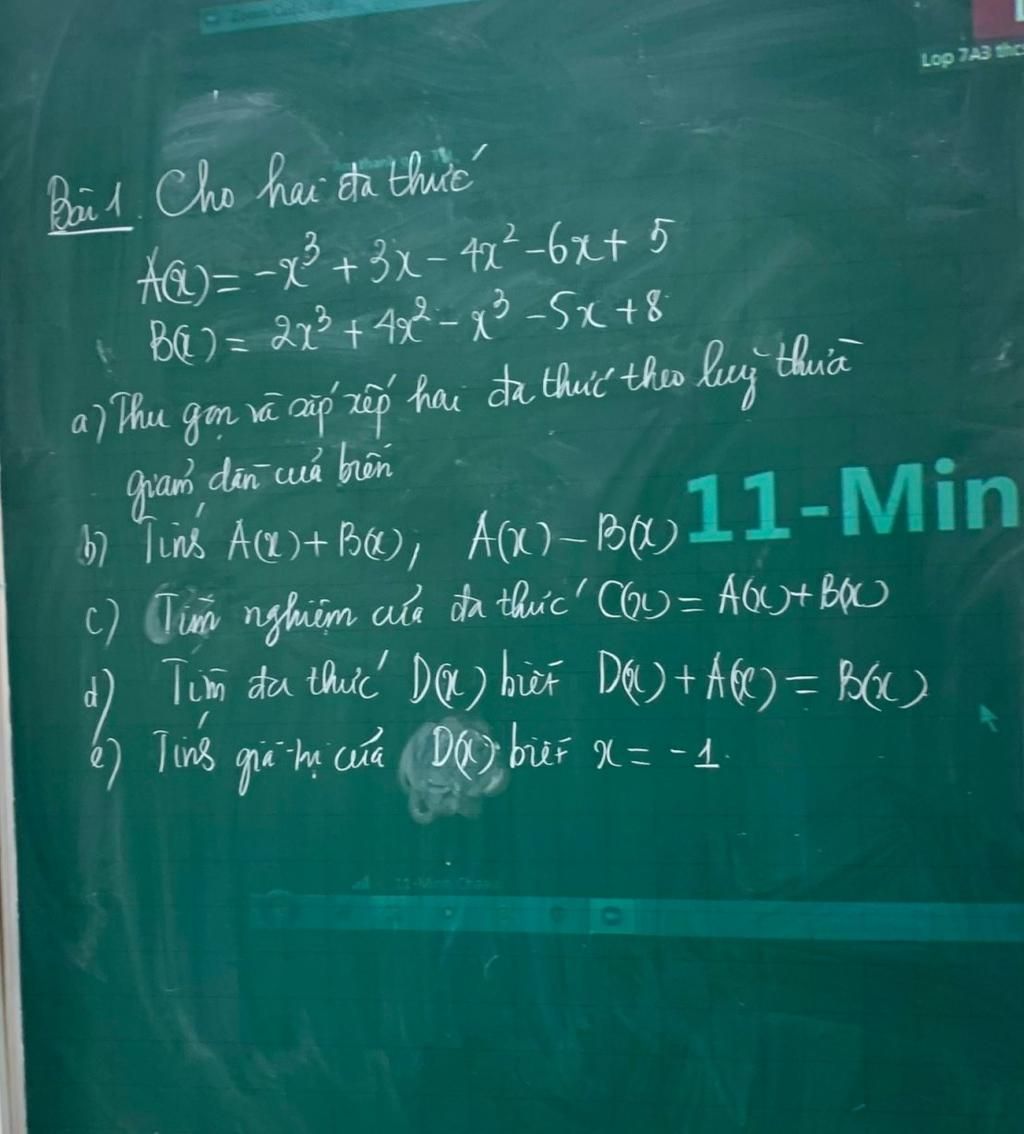 Lop 7A3 thc
Bài 1. Cho hai đa thức
A(x) = -x³ + 3x - 4x² - 6x + 5
B(x) = 2x³ + 4x² - x³ - 5x + 8
a) Thu gọn và sắp xếp hai đa thức theo luỹ thừa
giảm dần của biến
b) Tính A(x) + B(x); A(x) - B(x)
11-Min
c) Tìm nghiệm của đa thức C(x) = A(x) + B(x)
d) Tìm đa thức D(x) biết D(x) + A(x) = B(x)
e) Tính giá trị của D(x) biết x = -1.